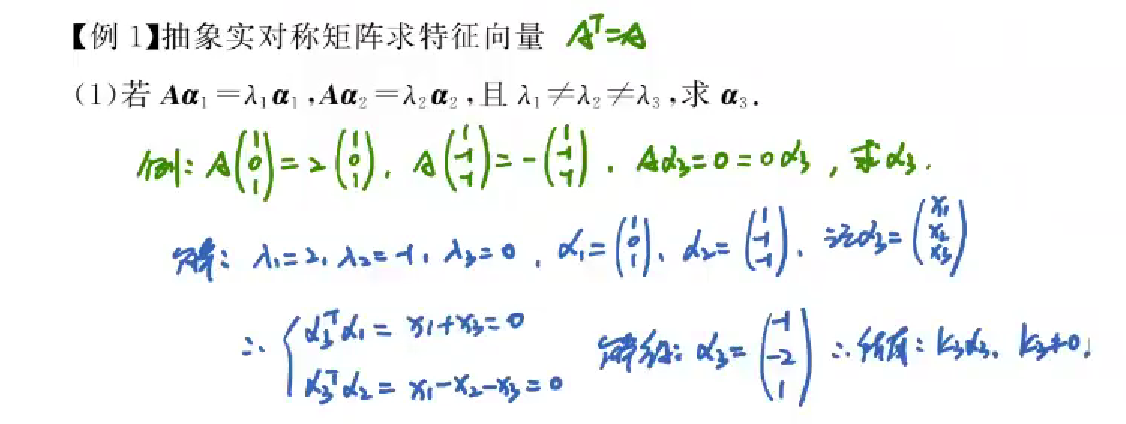 【例 1】抽象实对称矩阵求特征向量 Aᵀ=A
(1)若 Aα₁=λ₁α₁,Aα₂=λ₂α₂,且 λ₁≠λ₂≠λ₃,求 α₃.
例: A(1 0 1)=2(1 0 1), A(1 -1 -1)=-(1 -1 -1). Aα₃=0=0α₃, 求α₃.
解: λ₁=2, λ₂=-1, λ₃=0, α₁=(1 0 1), α₂=(1 -1 -1), 记α₃=(x₁ x₂ x₃)
∴ { α₃ᵀα₁=x₁+x₃=0
α₃ᵀα₂=x₁-x₂-x₃=0
解得: α₃=(-1 -2 1) ∴所有: k₃α₃, k₃≠0,